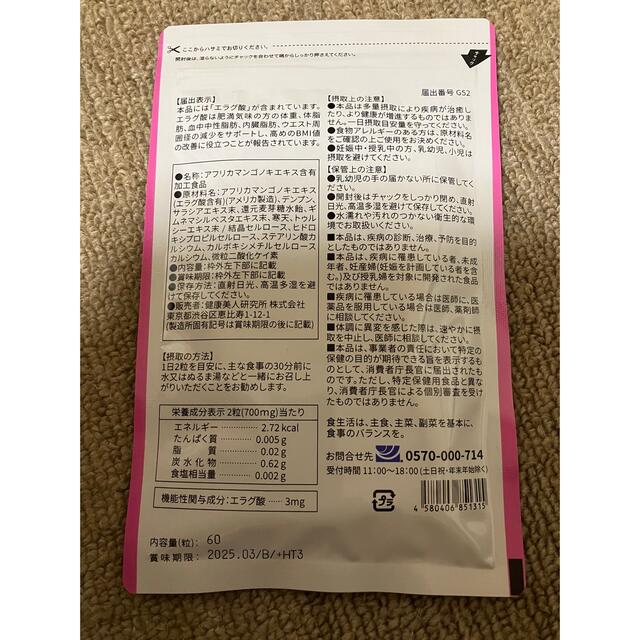 ここからハサミでお切りください。
開封後は、湿らないようにチャックを合わせて端からしっかり押さえてください。
届出番号 G52
【届出表示】
本品には「エラグ酸」が含まれています。
エラグ酸は肥満気味の方の体重、体脂
肪、血中中性脂肪、内臓脂肪、ウエスト周
囲径の減少をサポートし、高めのBMI値
の改善に役立つことが報告されています。
●アフリカマンゴノキエキス含有
加工食品
●原材料名:アフリカマンゴノキエキス
(エラグ酸含有)(アメリカ製造)、デンプン、
サラシアエキス末、還元麦芽糖水飴、ギ
ムネマシルベスタエキス末、寒天、トゥル
シーエキス末/結晶セルロース、ヒドロ
キシプロピルセルロース、ステアリン酸カ
ルシウム、カルボキシメチルセルロース
カルシウム、微粒二酸化ケイ素
●内容量:枠外左下部に記載
●賞味期限:枠外左下部に記載
●保存方法:直射日光、高温多湿を避
けて保存してください。
●販売者:健康美人研究所 株式会社
東京都渋谷区恵比寿1-12-1
(製造所固有記号は賞味期限の後に記載)
【摂取の方法】
1日2粒を目安に、主な食事の30分前に
水又はぬるま湯などと一緒にお召し上
がりいただくことをお勧めします。
栄養成分表示 2粒(700mg)当たり
エネルギー ……… 2.72 kcal
たんぱく質 ……… 0.005 g
脂質 ……… 0.02 g
炭水化物 ……… 0.62 g
食塩相当量 ……… 0.002 g
機能性関与成分:エラグ酸 …… 3mg
内容量(粒): 60
賞味期限: 2025.03/B/+HT3
【摂取上の注意】
●本品は多量摂取により疾病が治癒し
たり、より健康が増進するものではありま
せん。一日摂取目安量を守ってください。
●食物アレルギーのある方は、原材料名
をご確認の上ご使用をお決めください。
●妊娠中・授乳中の方、乳幼児、小児は
摂取を避けてください。
【保管上の注意】
●乳幼児の手の届かない所に保管してく
ださい。
●開封後はチャックをしっかり閉め、直射
日光、高温多湿を避けて保存してください。
●水濡れや汚れのつかない衛生的な環
境でお取扱いください。
■本品は、疾病の診断、治療、予防を目的
としたものではありません。
■本品は、疾病に罹患している者、未成
年者、妊産婦(妊娠を計画している者を含
む。)及び授乳婦を対象に開発された食品
ではありません。
■疾病に罹患している場合は医師に、医
薬品を服用している場合は医師、薬剤師
に相談してください。
■体調に異変を感じた際は、速やかに摂
取を中止し、医師に相談してください。
■本品は、事業者の責任において特定の
保健の目的が期待できる旨を表示するも
のとして、消費者庁長官に届出されたもの
です。ただし、特定保健用食品と異な
り、消費者庁長官による個別審査を受け
たものではありません。
食生活は、主食、主菜、副菜を基本に、
食事のバランスを。
お問合せ先 0570-000-714
受付時間 11:00~18:00 (土日祝・年末年始除く)
プラ
4 580406 851315